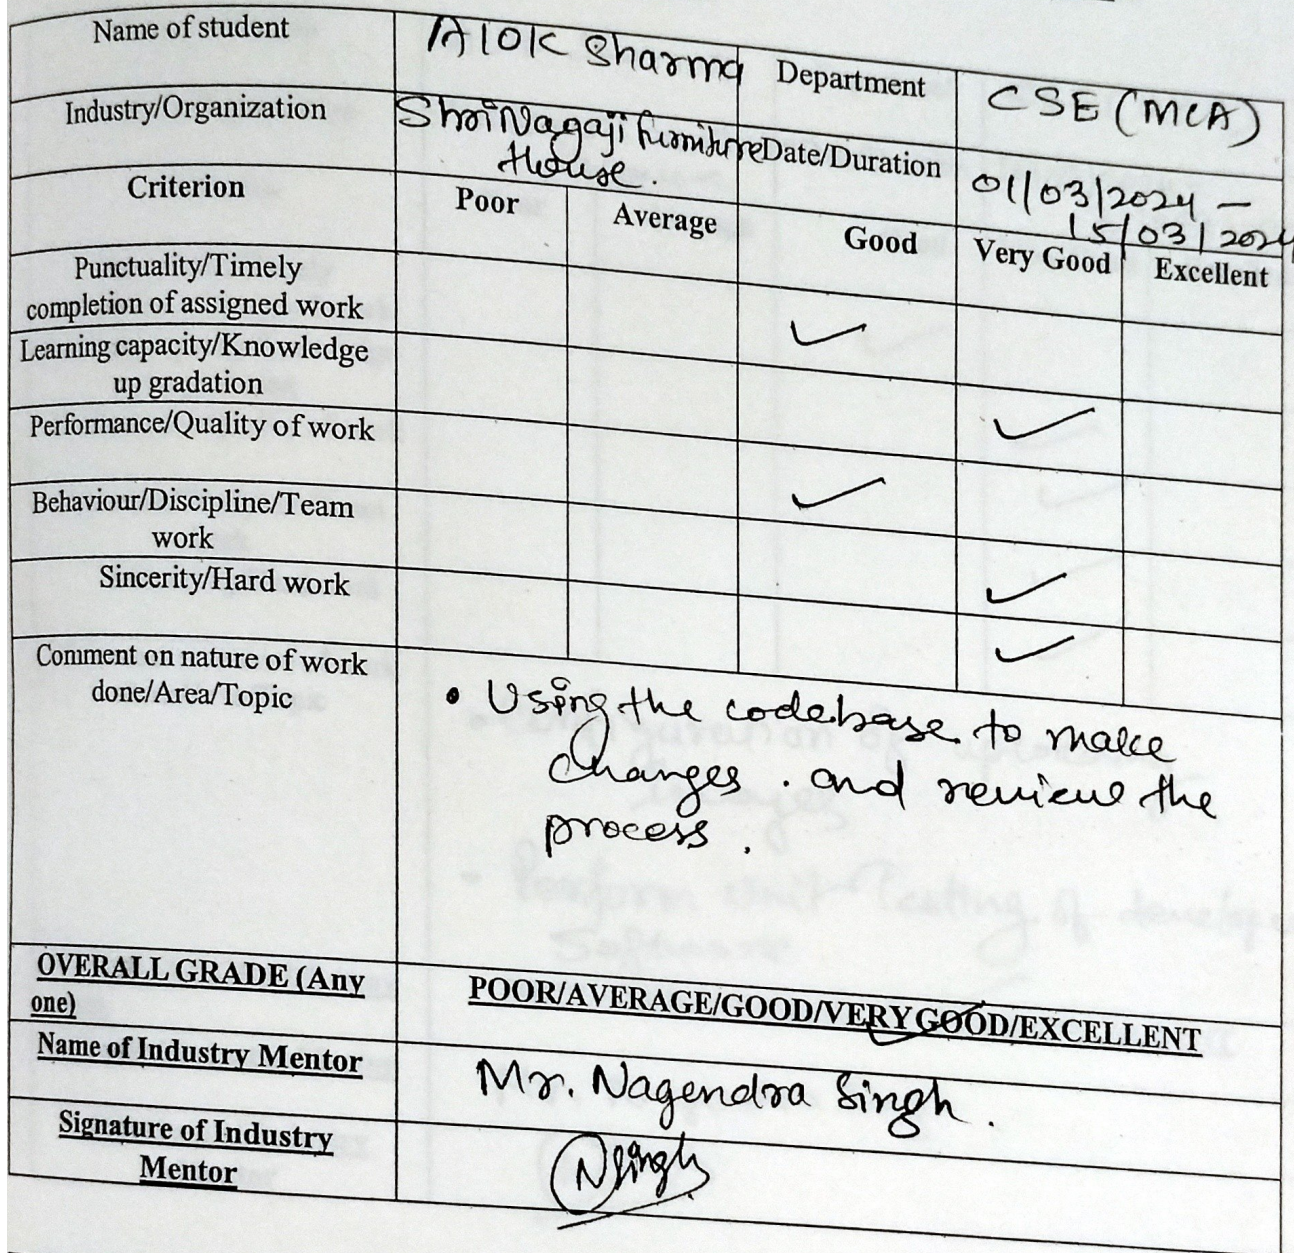 Name of student Alok Sharma Department CSE (MCA)
Industry/Organization Shri Nagaji furniture House. Date/Duration 01/03/2024 – 15/03/2024
Criterion Poor Average Good Very Good Excellent
Punctuality/Timely
completion of assigned work ✓
Learning capacity/Knowledge
up gradation ✓
Performance/Quality of work ✓
Behaviour/Discipline/Team
work ✓
Sincerity/Hard work ✓
Comment on nature of work
done/Area/Topic
• Using the codebase to make
changes . and review the
process .
OVERALL GRADE (Any
one)
POOR/AVERAGE/GOOD/VERY GOOD/EXCELLENT
Name of Industry Mentor Mr. Nagendra Singh .
Signature of Industry
Mentor
NSingh